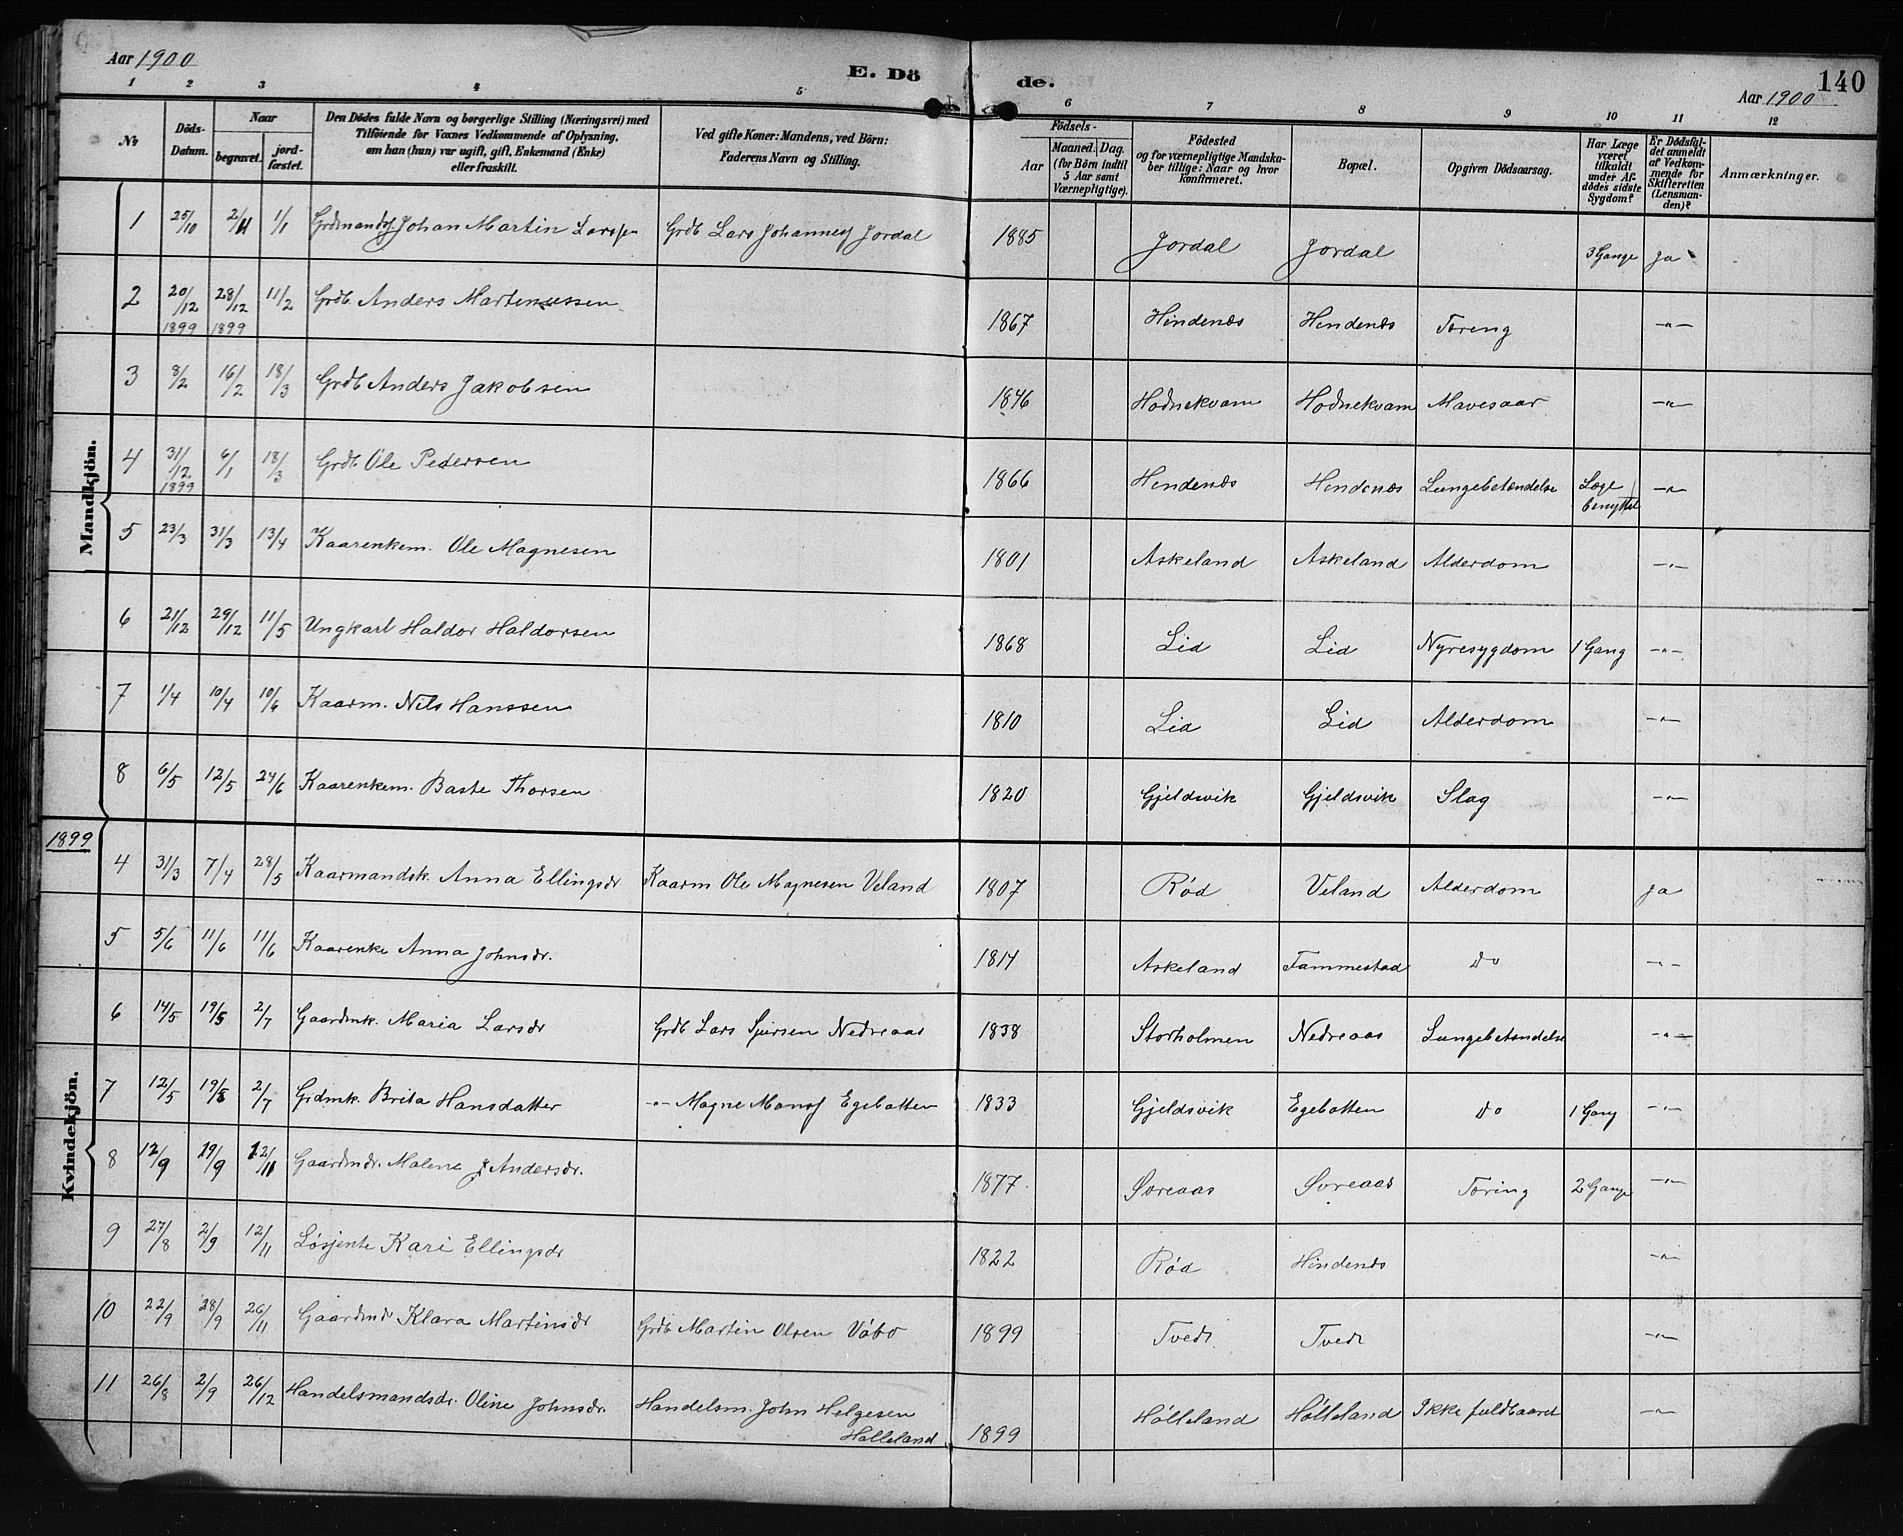 Aar 1900
E. Dö
de.
140
Aar 1900
1 2 3 4 5 6 7 8 9 10 11 12
No
Döds-Datum.
Naar
begravet.
jord-fæstet.
Den Dödes fulde Navn og borgerlige Stilling (Næringsvei) med
Tilföiende for Voxnes Vedkommende af Oplysning,
om han (hun) var ugift, gift, Enkemand (Enke)
eller fraskilt.
Ved gifte Koner: Mandens, ved Börn:
Faderens Navn og Stilling.
Födsels-
Aar
Maaned. Dag.
(for Börn indtil
5 Aar samt
Værnepligtige).
Födested
og for værnepligtige Mandska-
ber tillige: Naar og hvor
konfirmeret.
Bopæl.
Opgiven Dödsaarsag.
Har Læge
været
tilkaldt
under Af-
dödes sidste
Sygdom?
Er Dödsfal-
det anmeldt
af Vedkom-
mende for
Skifteretten
(Lensman-
den)?
Anmærkninger.
Mandkjön.
1 25/10 2/11 1/1 Grdmands. Johan Martin Larssen Grdb Lars Johannes Jordal 1885 Jordal Jordal 3 Gange ja
2 20/12 1899 28/12 1899 11/2 Grdb. Anders Martinussen 1867 Hindenes Hindenes Tæring -"-
3 8/2 16/2 18/3 Grdb Anders Jakobsen 1846 Hodnekvam Hodnekvam Mavesaar -"-
4 31/12 1899 6/1 18/3 Grdb Ole Pedersen 1866 Hindenes Hindenes Lungebetændelse Læge benyttet -"-
5 23/3 31/3 13/4 Kaarenkem. Ole Magnesen 1801 Askeland Askeland Alderdom -"-
6 21/12 29/12 11/5 Ungkarl Haldor Haldorsen 1868 Lid Lid Nyresygdom 1 Gang -"-
7 1/4 10/4 10/6 Kaarm. Nils Hanssen 1810 Lid Lid Alderdom -"-
8 6/5 12/5 24/6 Kaarenkem. Baste Thorsen 1820 Gjeldsvik Gjeldsvik Slag -"-
1899
Kvindekjön.
4 31/3 7/4 28/5 Kaarmandsk. Anna Ellingsdr Kaarm Ole Magnesen Veland 1807 Rød Veland Alderdom ja
5 5/6 11/6 11/6 Kaarenke Anna Johnsdr. 1814 Askeland Fammestad Do -"-
6 14/5 19/5 2/7 Gaardmk. Maria Larsdr Grdb Lars Sjursen Nedreaas 1838 Storholmen Nedreaas Lungebetændelse -"-
7 12/5 19/5 2/7 Grdmk. Brita Hansdatter -"- Magne Monss Egebotten 1833 Gjeldsvik Egebotten Do 1 Gang -"-
8 12/9 19/9 12/11 Gaardmdr. Malene J Andersdr. 1877 Soreaas Soreaas Tæring 2 Gange -"-
9 27/8 2/9 12/11 Løsjente Kari Ellingsdr 1822 Rød Hindenes -"-
10 22/9 28/9 26/11 Gaardmdr Klara Martinsdr Grdb Martin Olsen Vabo 1899 Tvedt Tvedt -"-
11 26/8 2/9 26/12 Handelsmandsdr. Oline Johnsdr. Handelsm. John Helgesen Hølleland 1899 Hølleland Hølleland Ikke fuldbaaret -"-